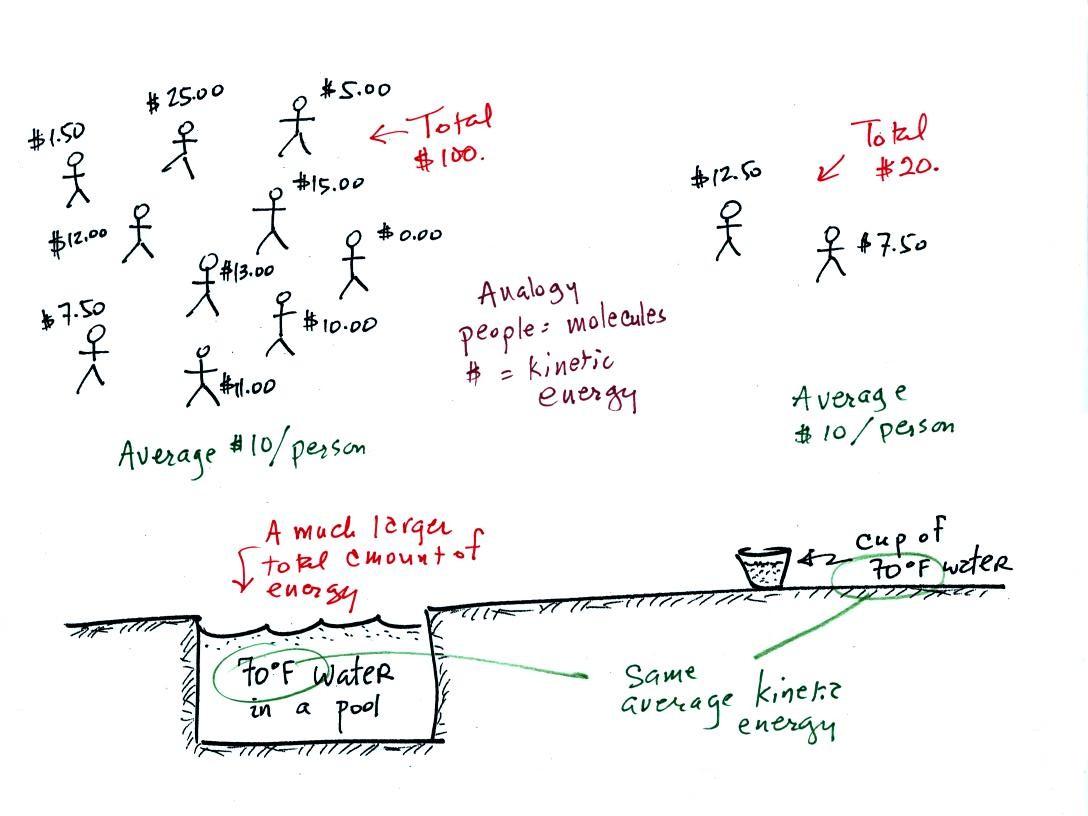 $1.50
$25.00
$5.00
← Total
$100.
$12.00
$15.00
$0.00
$13.00
$7.50
$10.00
$11.00
Average $10/person
Analogy
people = molecules
$ = kinetic
energy
Total
$20.
$12.50
$7.50
Average
$10/person
A much larger
total amount of
energy
70°F water
in a pool
cup of
70°F water
Same
average kinetic
energy